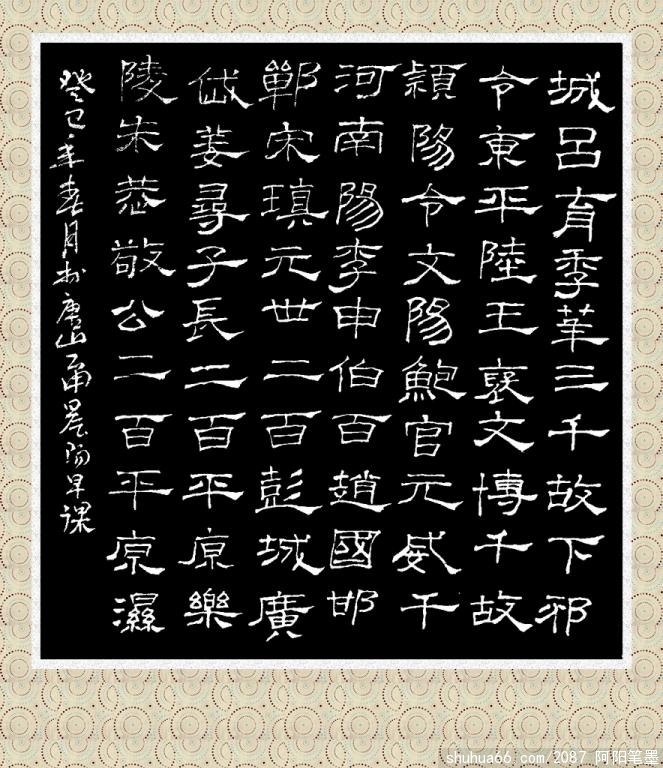 城呂育季華三千故下邳
令東平陸王襃文博千故
潁陽令文陽鮑宮元威千
河南陽李申伯百趙國邯
鄲宋瑱元世二百彭城廣
戚姜尋子長二百平原樂
陵朱恭敬公二百平原濕
癸巳年春月於唐山甬晨陽早課
shuhua66.com/2087 阿阳笔墨